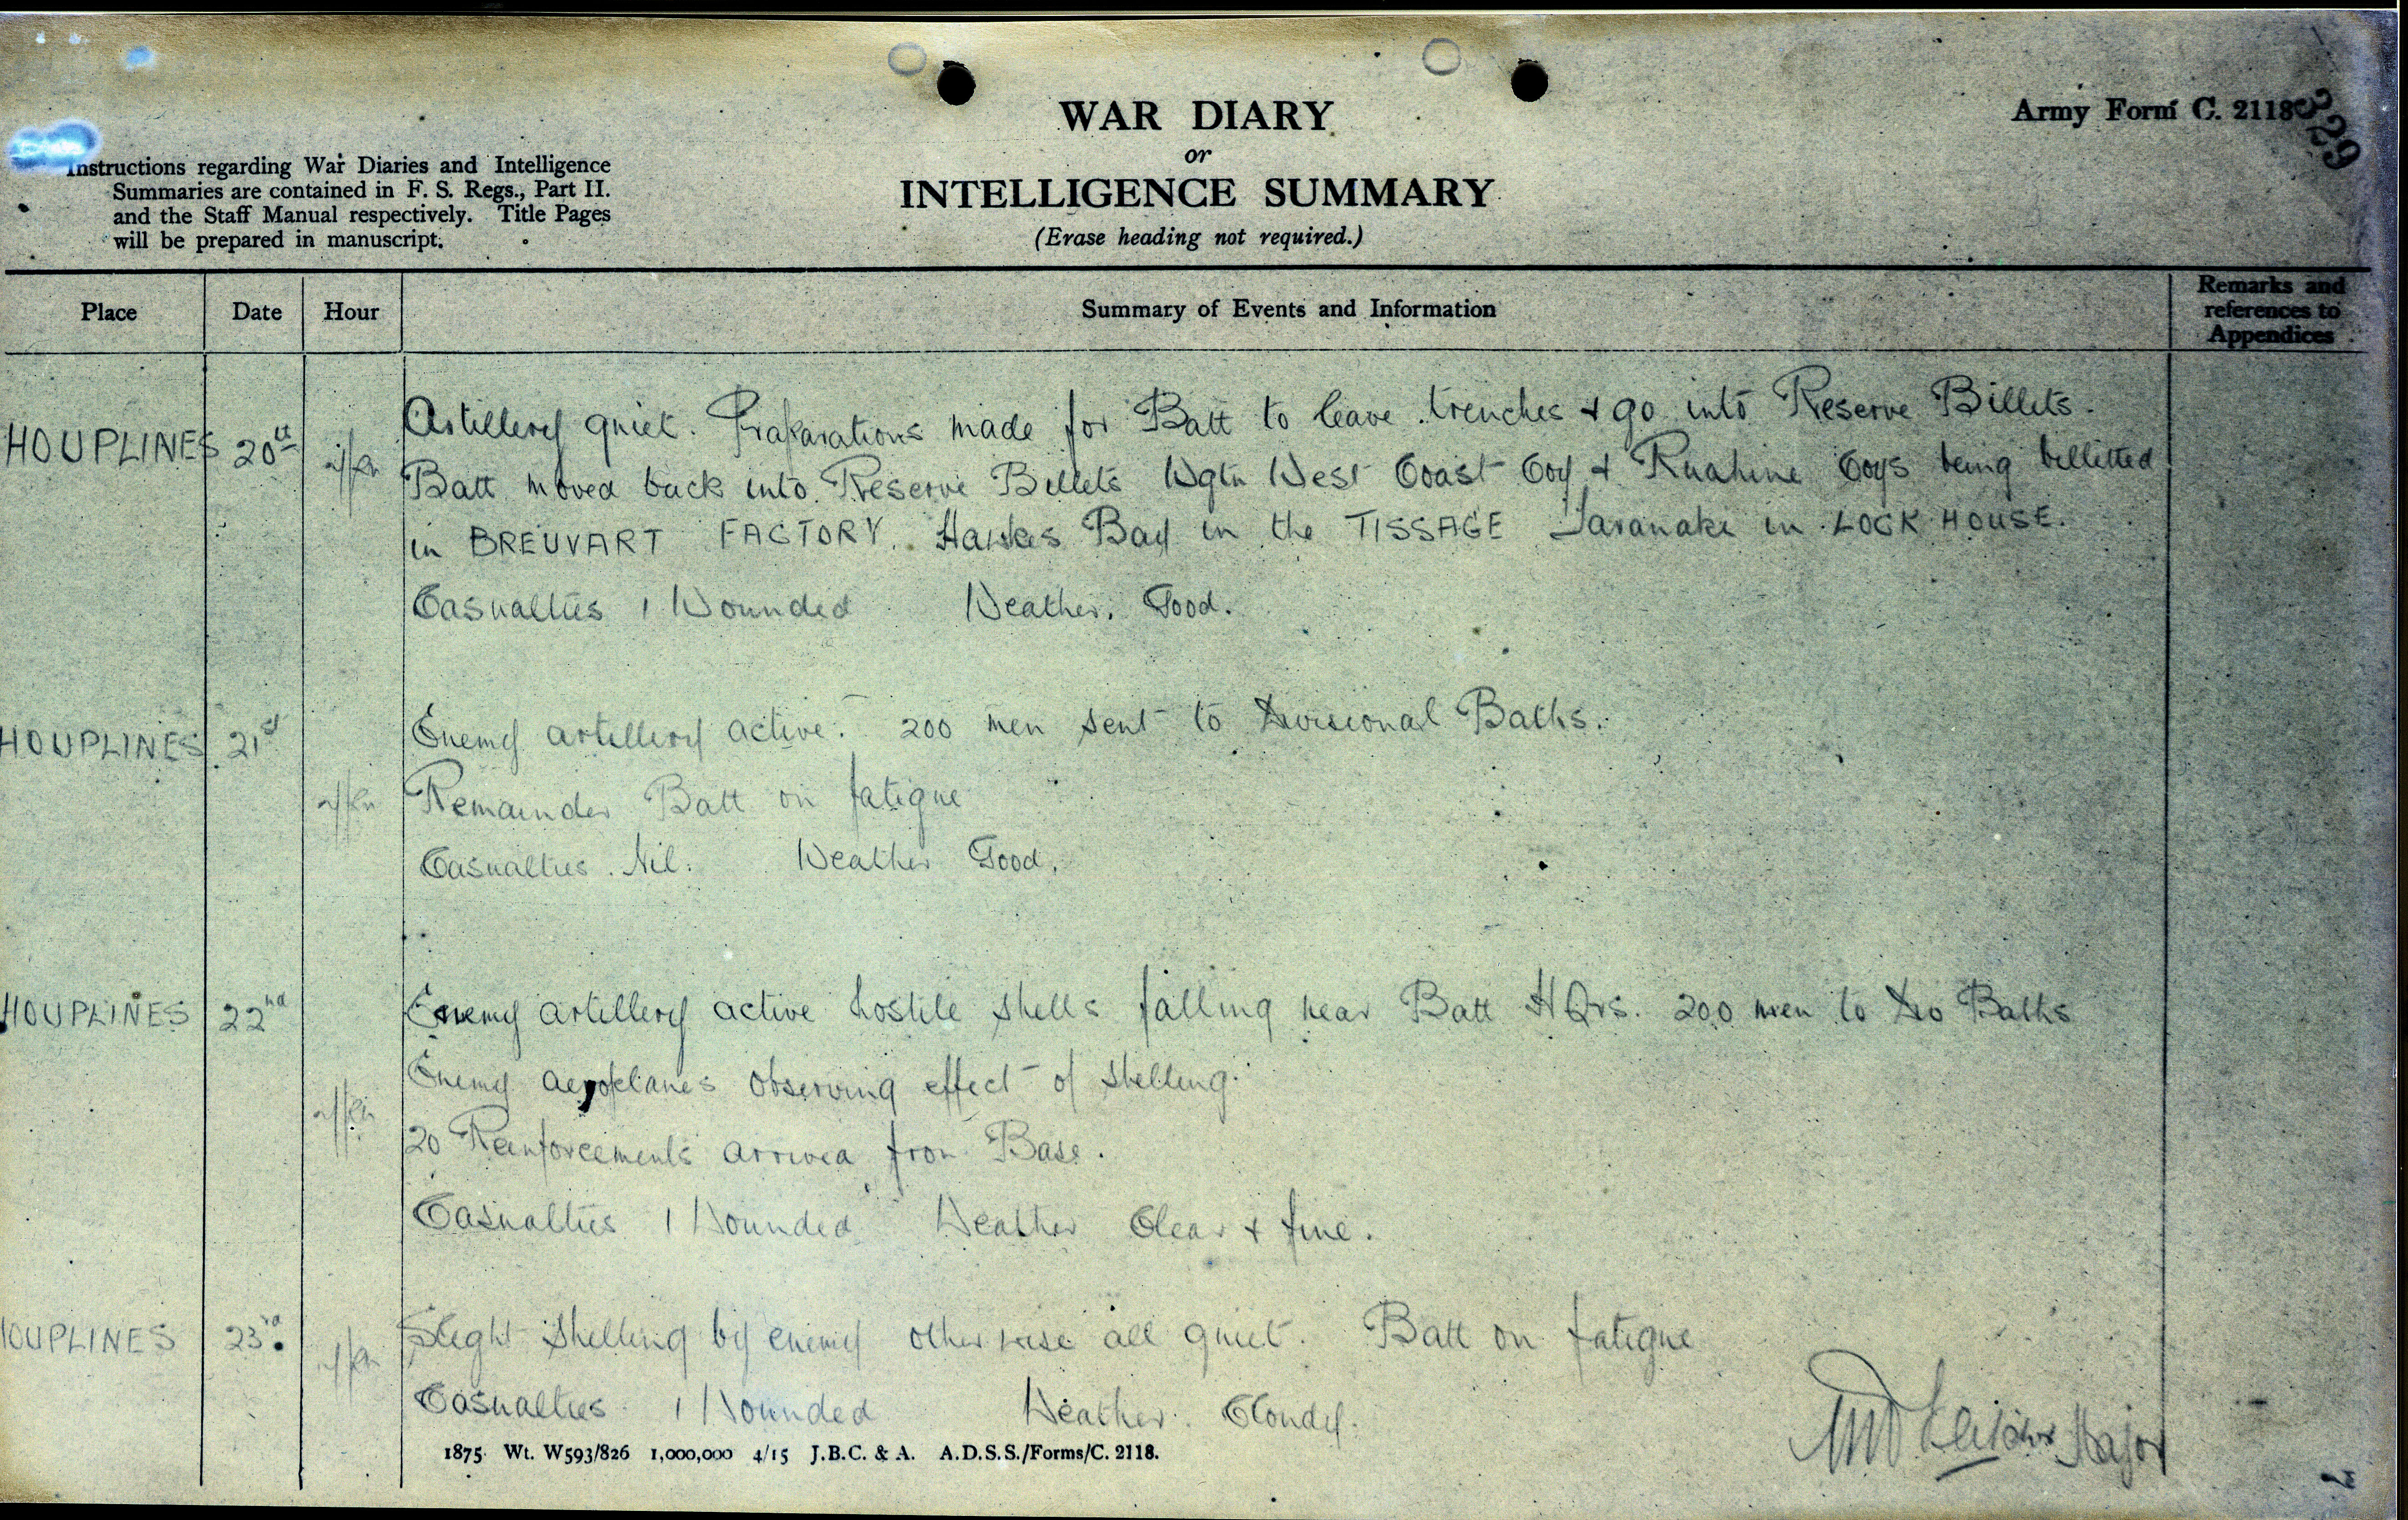 WAR DIARY
or
INTELLIGENCE SUMMARY
(Erase heading not required.)
Army Form C. 2118
329
Instructions regarding War Diaries and Intelligence
Summaries are contained in F. S. Regs., Part II.
and the Staff Manual respectively. Title Pages
will be prepared in manuscript.
Place Date Hour Summary of Events and Information Remarks and references to Appendices
HOUPLINES 20th Artillery quiet. Praparations made for Batt to leave trenches & go into Reserve Billets.
Batt moved back into Reserve Billets Wgtn West Coast Coy & Ruahine Coys being billetted
in BREUVART FACTORY. Hawkes Bay in the TISSAGE Taranaki in LOCK HOUSE.
Casualties 1 Wounded Weather. Good.
HOUPLINES 21st Enemy artillery active. 200 men sent to Divisional Baths.
Remainder Batt on fatigue
Casualties. Nil. Weather Good.
HOUPLINES 22nd Enemy artillery active hostile shells falling near Batt HQrs. 200 men to Div Baths
Enemy aeroplanes observing effect of shelling.
20 Reinforcements arrived from Base.
Casualties 1 Wounded Weather Clear & fine.
HOUPLINES 23rd Slight shelling by enemy otherwise all quiet. Batt on fatigue
Casualties 1 Wounded Weather. Cloudy.
Major
1875 Wt. W593/826 1,000,000 4/15 J.B.C. & A. A.D.S.S./Forms/C. 2118.